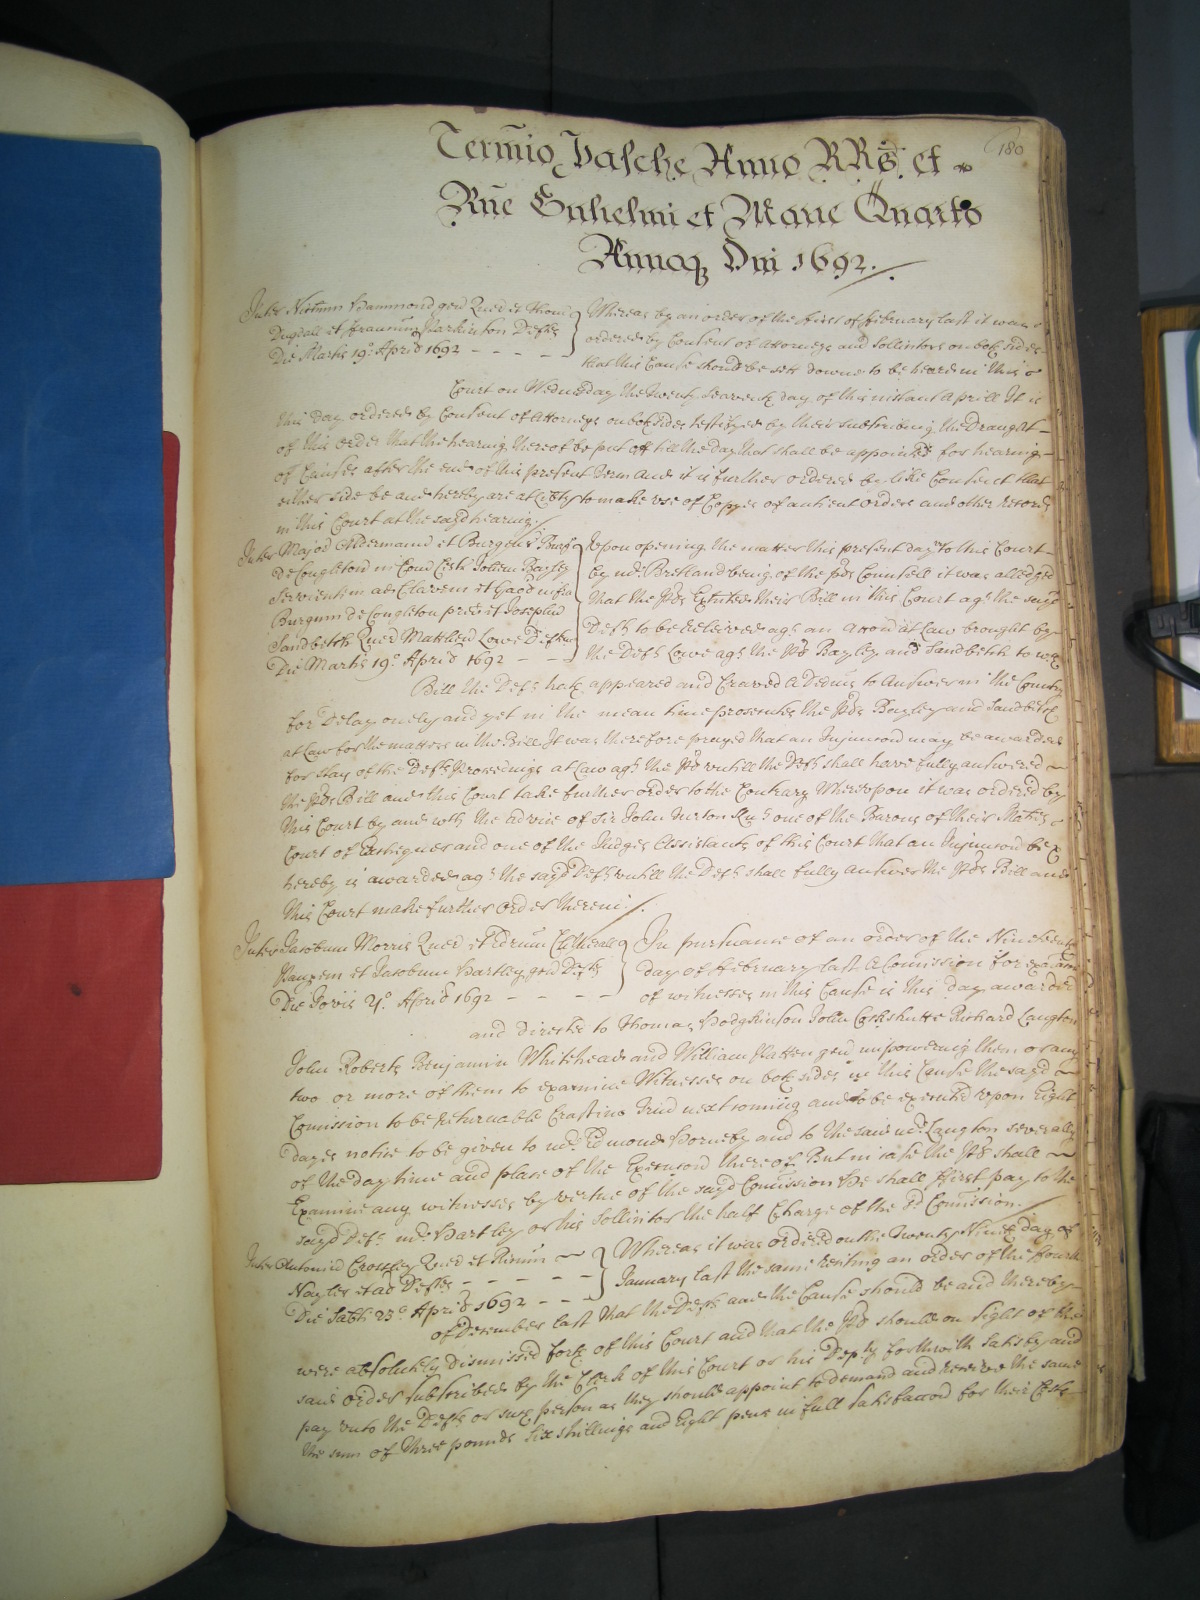 180
Termio Pasche Anno RRs et
Rne Gulielmi et Marie Quarto
Annoq Dni 1692.
Inter Hammond gen Quer et Thom
Dugdall et Parkinson Defts
Die Martis 19o Aprd 1692
Whereas by an order of the first of ffebruary last it was
ordered by Consent of Attorneys and Sollicitors on both sides
that this Cause should be sett downe to be heard in this
Court on Wednesday the twenty seaventh day of this instant Aprill It is
this day ordered by Consent of Attorneys on both sides testifyed by their subscribing the Draught
of this order that the hearing thereof be put off till the day that shall be appointed for hearing
of Causes after the end of this present Term and it is further ordered by like Consent that
either side be and hereby are at Libty to make use of Coppyes of antient orders and other records
in this Court at the sayd hearing
Inter Major Aldermann et Burgens
de Congleton in Com Cestr Johem Bayley
Servientem ad Clavem et
Burgum de Congleton pred et Josephu
Sandbach Quer Mattheu Lowe Deften
Die Martis 19o Aprd 1692
Upon opening the matter this present day to this Court
by mr Bretland being of the Pts Counsell it was alledged
that the Pts Exhibited their Bill in this Court agt the sayd
Deft to be releived agt an accon at Law brought by
the Deft Lowe agt the Pts Bayley and Sandbach to wch
Bill the Deft hath appeared and Craved a Dedimus to Answer in the Country
for Delay onely and yet in the mean time prosecutes the Pts Bayley and Sandbach
at Law for the matters in the Bill It was therefore prayed that an Injuncon may be awarded
for stay of the Defts Proceedings at Law agt the Pts untill the Deft shall have fully answered
the Pts Bill and this Court take further order to the Contrary Whereupon it was ordered by
this Court by and with the advice of Sir John Turton Knt one of the Barons of their Maties
Court of Exchequer and one of the Judges Assistants of this Court that an Injuncon be &
hereby is awarded agt the sayd Deft untill the Deft shall fully answer the Pts Bill and
this Court make further order therein
Inter Jacobum Morris Quer et
et Jacobum Hartley gen Defts
Die Jovis 21o Aprd 1692
In pursuance of an order of the Nineteenth
day of ffebruary last a Comission for
of witnesses in this Cause is this day awarded
and directed to Thomas Hodgkinson John Cockshutte Richard Langton
John Roberts Benjamin Whitehead and William Patten gen impowering them or any
two or more of them to examine Witnesses on both sides in this Cause the sayd
Comission to be returnable Crastino Trin next coming and to be executed upon Eight
dayes notice to be given to mr Edmond Hornby and to the said mr Langton severally
of the day time and place of the Execucon thereof But in case the Pt shall
Examine any witnesses by vertue of the sayd Comission He shall ffirst pay to the
sayd Deft mr Hartley or his Sollicitor the half Charge of the sd Comission
Inter Antoniu Crossley Quer et
Nayler et al Defts
Die Sabti 23o Aprd 1692
Whereas it was ordered on the Twenty Ninth day of
January last the same reciting an order of the fourth
of December last that the Defts and the Cause should be and thereby
were absolutely dismissed forth of this Court and that the Pt should on sight of the
said order subscribed by the Clerk of this Court or his Depty forthwith satisfy and
pay unto the Defts or such person as they should appoint to demand and receive the same
the sum of three pounds six shillings and Eight pence in full satisfaccon for their Costs